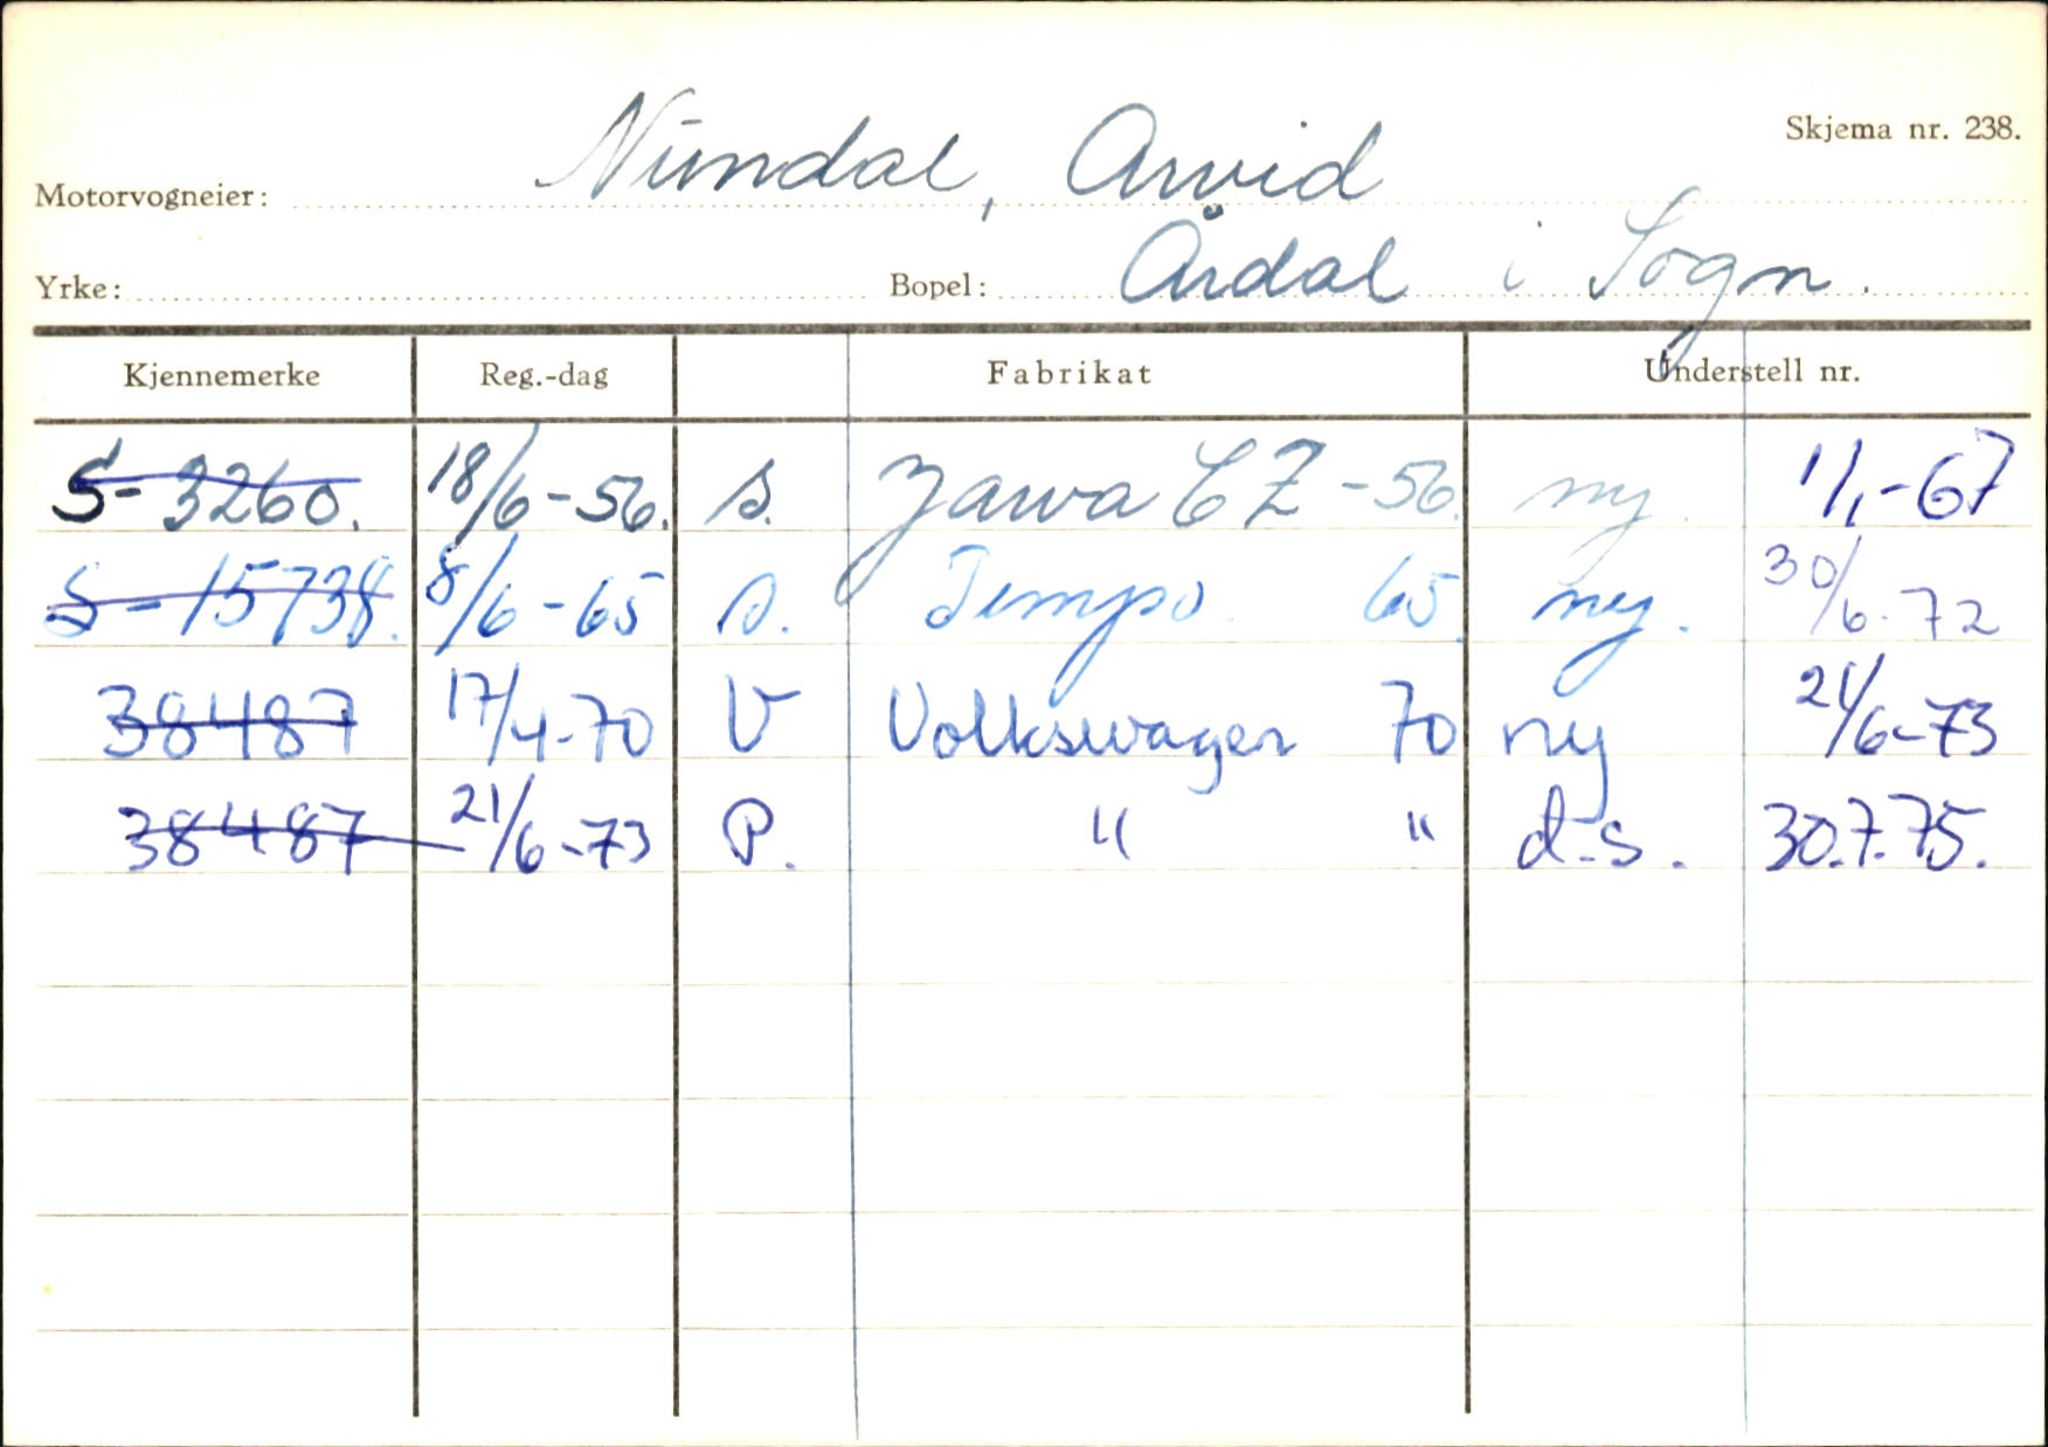 Skjema nr. 238.
Motorvogneier: Nundal, Arvid
Yrke: Bopel: Årdal i Sogn.
Kjennemerke Reg.-dag Fabrikat Understell nr.
S-3260. 18/6-56. s. Jawa CZ -56. ny. 1/1-67
S-15738. 8/6-65 s. Tempo 65. ny. 30/6-72
38487 17/4-70 V Volkswagen 70 ny 21/6-73
38487 21/6-73 P. " " d.s. 30.7.75.